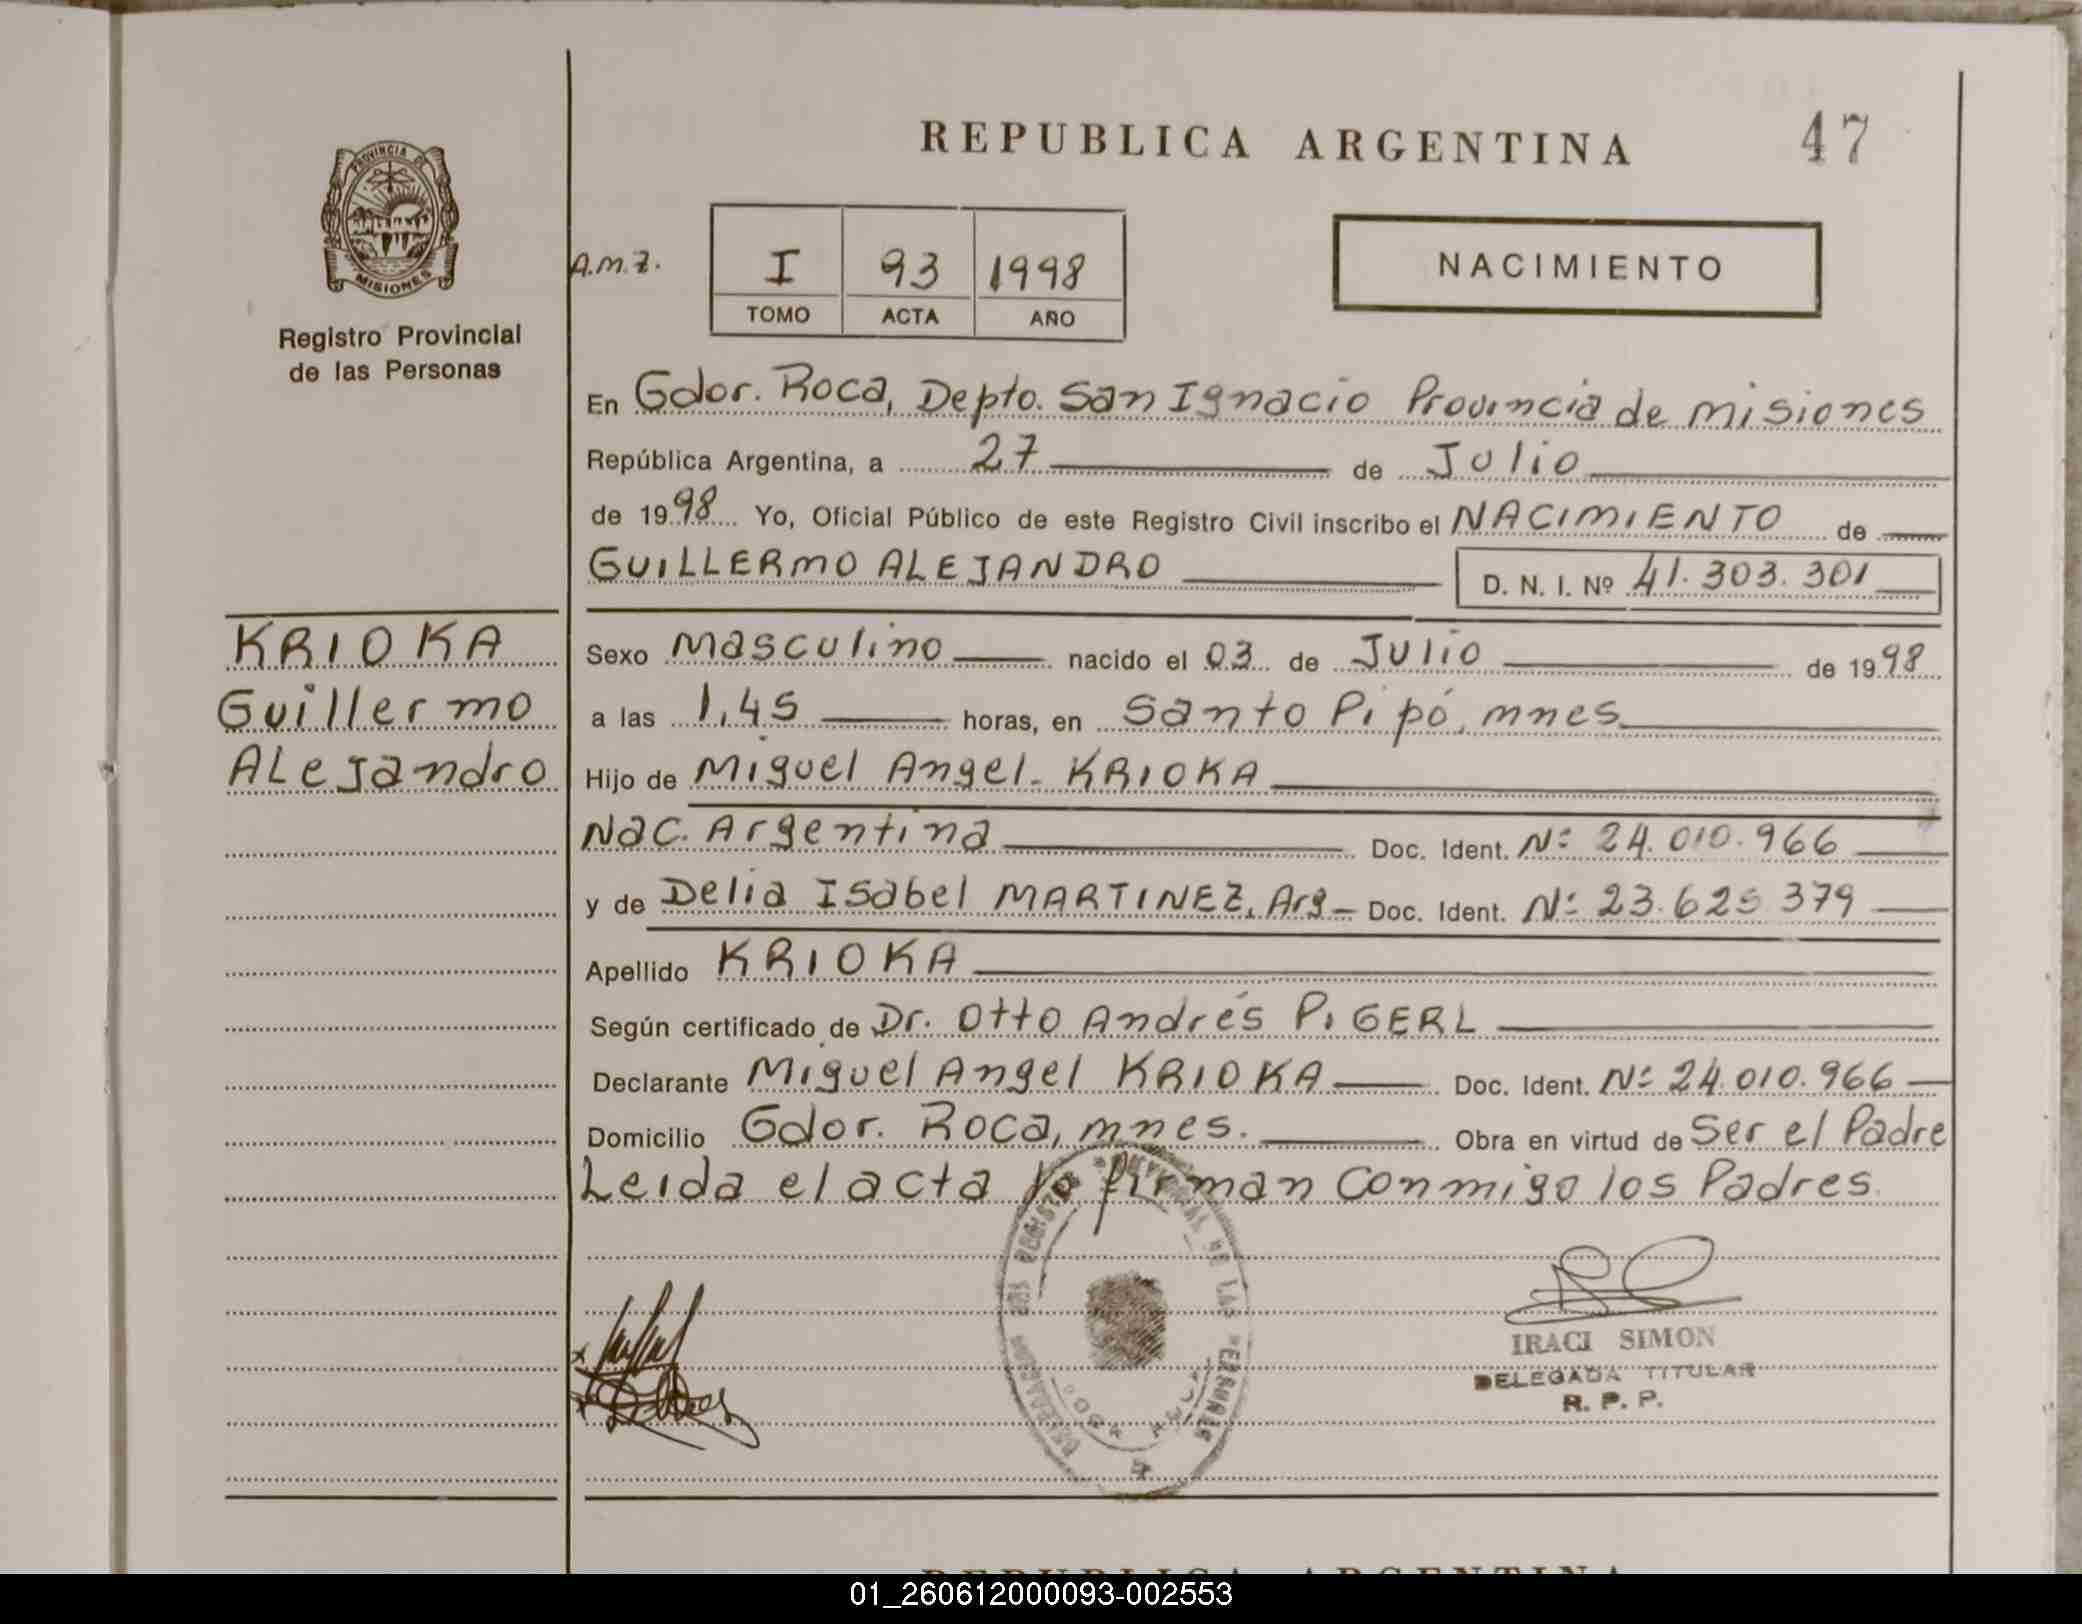 REPUBLICA ARGENTINA
47
PROVINCIA DE
MISIONES
Registro Provincial
de las Personas
A.M.Z.
I 93 1998
TOMO ACTA AÑO
NACIMIENTO
En Gdor. Roca, Depto. San Ignacio Provincia de misiones
República Argentina, a 27 de Julio
de 1998 Yo, Oficial Público de este Registro Civil inscribo el NACIMIENTO de
GUILLERMO ALEJANDRO D. N. I. Nº 41.303.301
KRIOKA
Guillermo
Alejandro
Sexo Masculino nacido el 03 de Julio de 1998
a las 1,45 horas, en Santo Pipó, mnes
Hijo de Miguel Angel - KRIOKA
Nac. Argentina Doc. Ident. Nº 24.010.966
y de Delia Isabel MARTINEZ, Arg - Doc. Ident. Nº 23.625 379
Apellido KRIOKA
Según certificado de Dr. Otto Andrés PIGERL
Declarante Miguel Angel KRIOKA Doc. Ident. Nº 24.010.966
Domicilio Gdor. Roca, mnes. Obra en virtud de Ser el Padre
Leida el acta la firman Conmigo los Padres.
IRACI SIMON
DELEGADA TITULAR
R. P. P.
REPUBLICA ARGENTINA
01_260612000093-002553